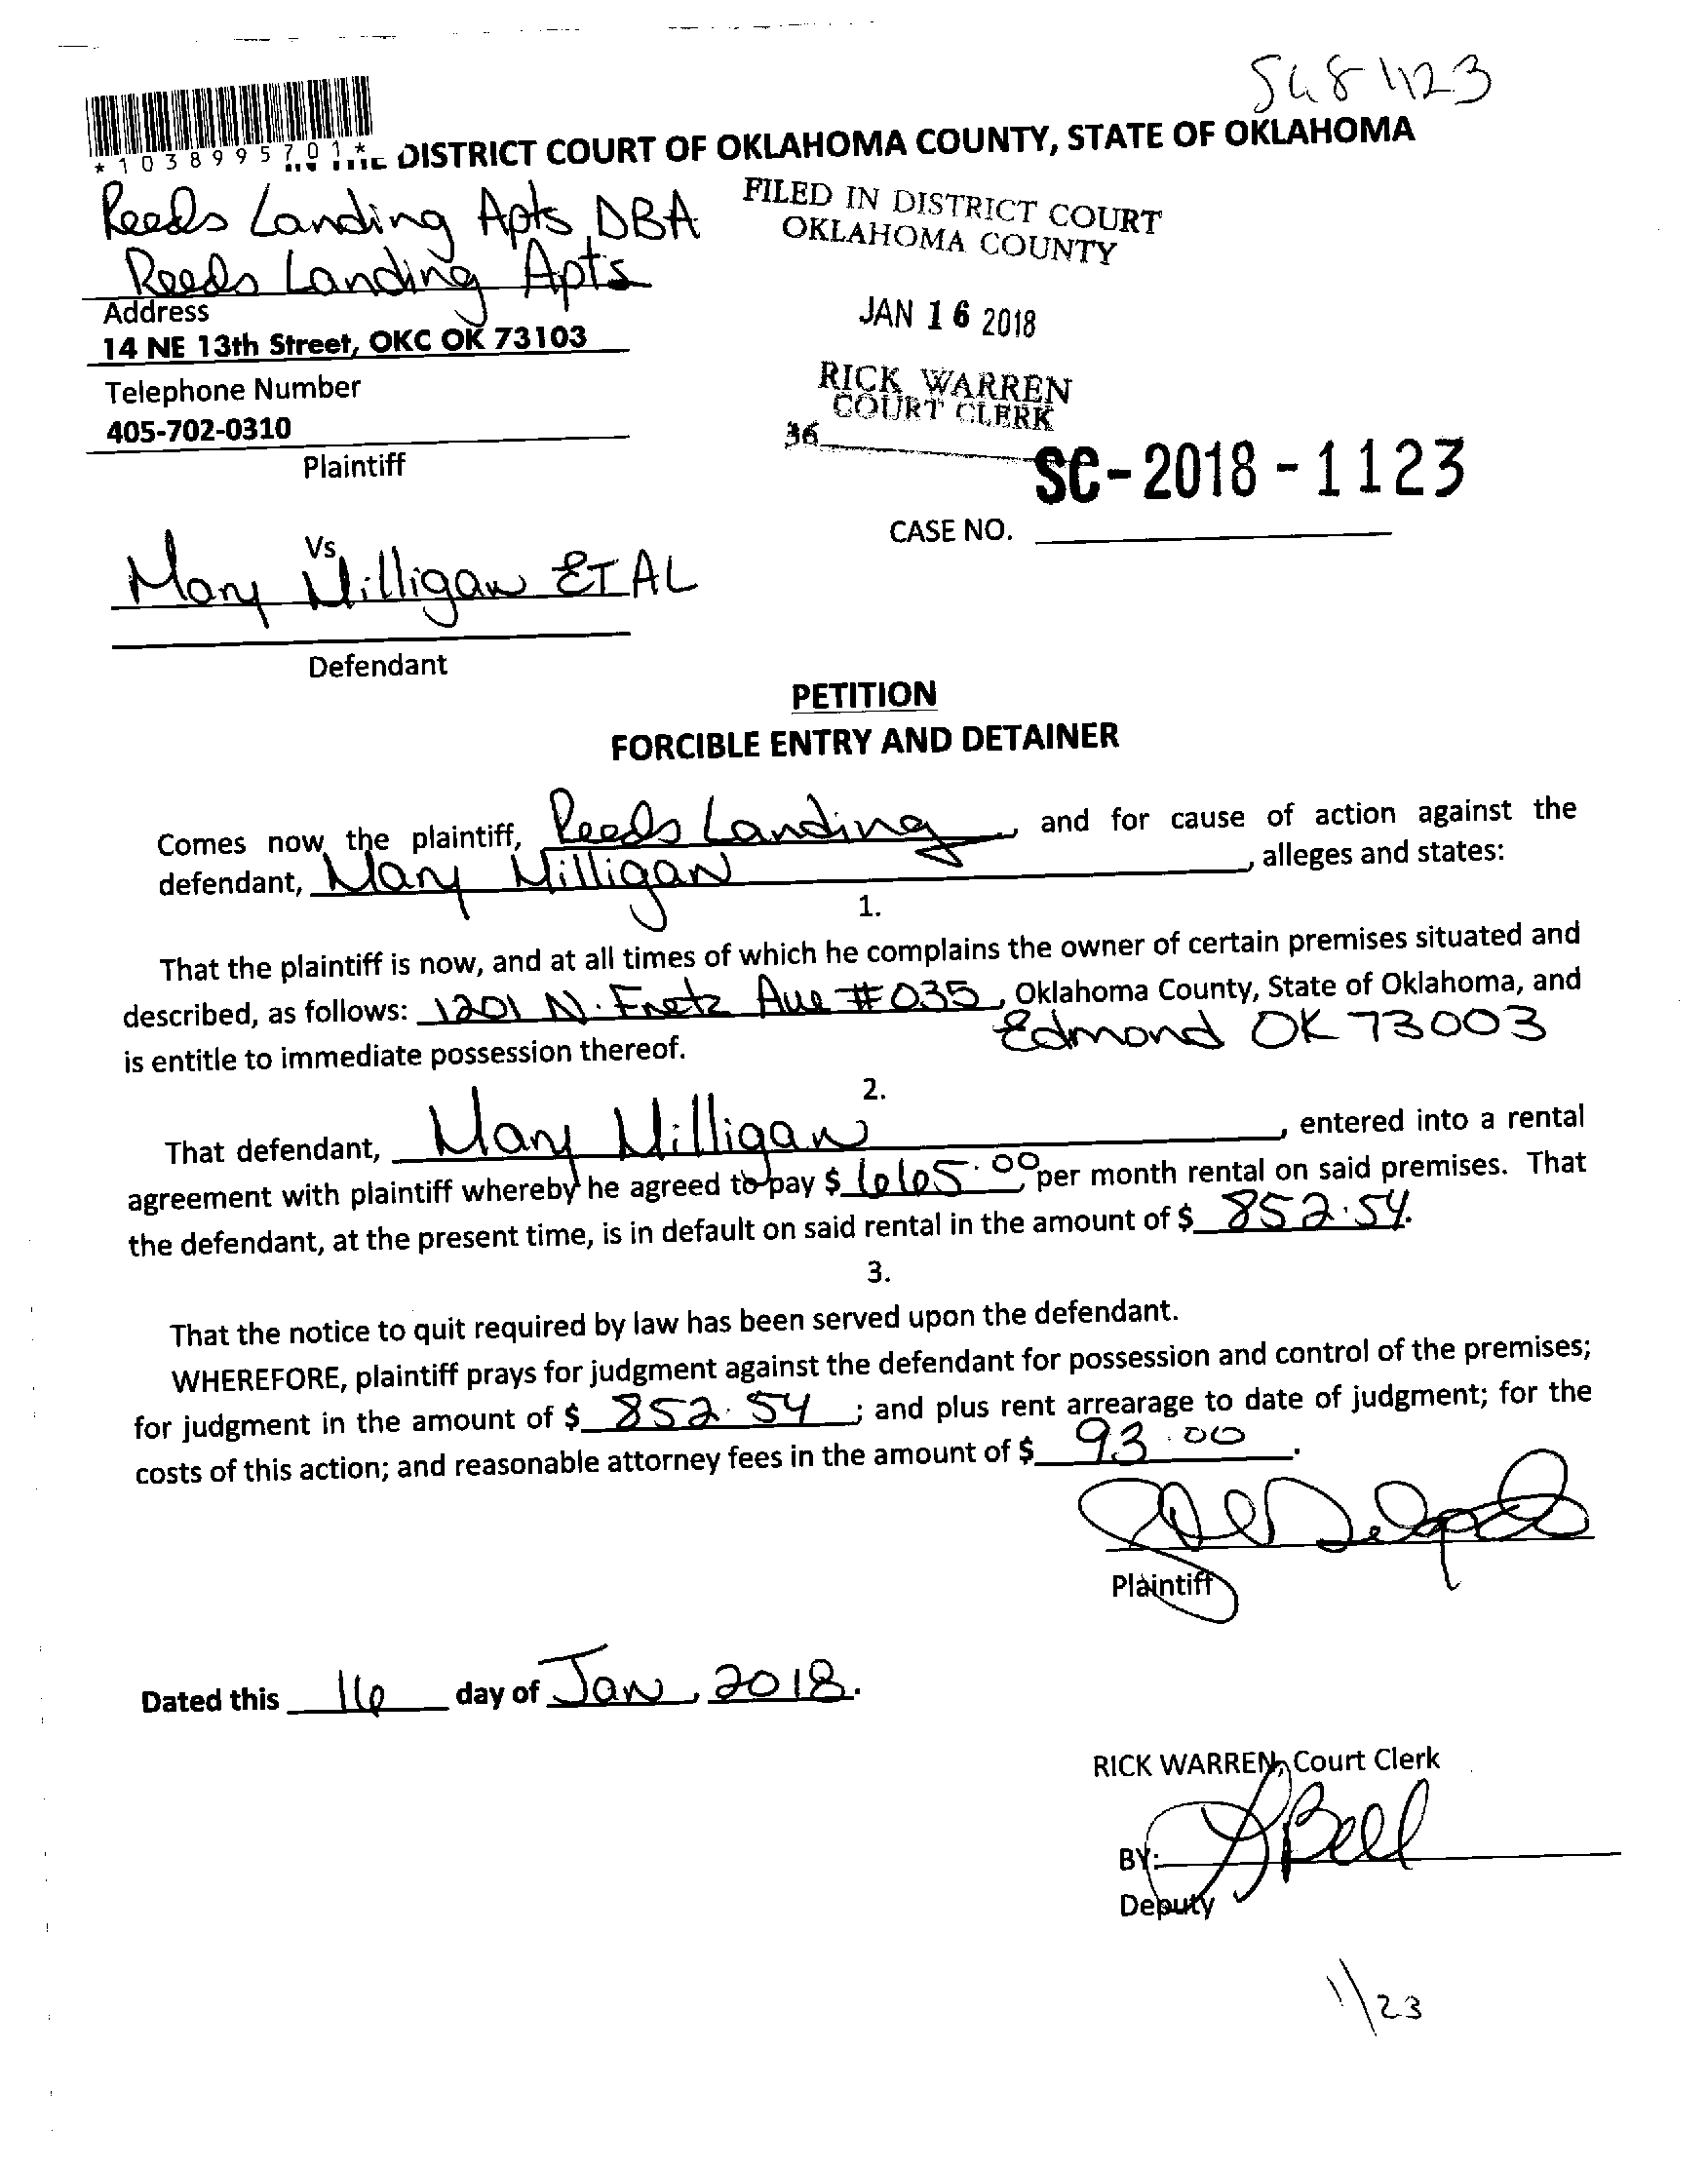 *1038995701*
DISTRICT COURT OF OKLAHOMA COUNTY, STATE OF OKLAHOMA
Reeds Landing Apts DBA
Reeds Landing Apts
FILED IN DISTRICT COURT
OKLAHOMA COUNTY
JAN 16 2018
RICK WARREN
COURT CLERK
36
Address
14 NE 13th Street, OKC OK 73103
Telephone Number
405-702-0310
Plaintiff
SC-2018-1123
CASE NO.
Vs
Mary Milligan ET AL
Defendant
PETITION
FORCIBLE ENTRY AND DETAINER
Comes now the plaintiff, Reeds Landing, and for cause of action against the
defendant, Mary Milligan, alleges and states:
1.
That the plaintiff is now, and at all times of which he complains the owner of certain premises situated and
described, as follows: 1201 N. Fretz Ave #035, Oklahoma County, State of Oklahoma, and
Edmond OK 73003
is entitle to immediate possession thereof.
2.
That defendant, Mary Milligan, entered into a rental
agreement with plaintiff whereby he agreed to pay $ 665.00 per month rental on said premises. That
the defendant, at the present time, is in default on said rental in the amount of $ 852.54.
3.
That the notice to quit required by law has been served upon the defendant.
WHEREFORE, plaintiff prays for judgment against the defendant for possession and control of the premises;
for judgment in the amount of $ 852.54; and plus rent arrearage to date of judgment; for the
costs of this action; and reasonable attorney fees in the amount of $ 93.00.
Plaintiff
Dated this 16 day of Jan, 2018.
RICK WARREN, Court Clerk
BY: Bell
Deputy
1/23